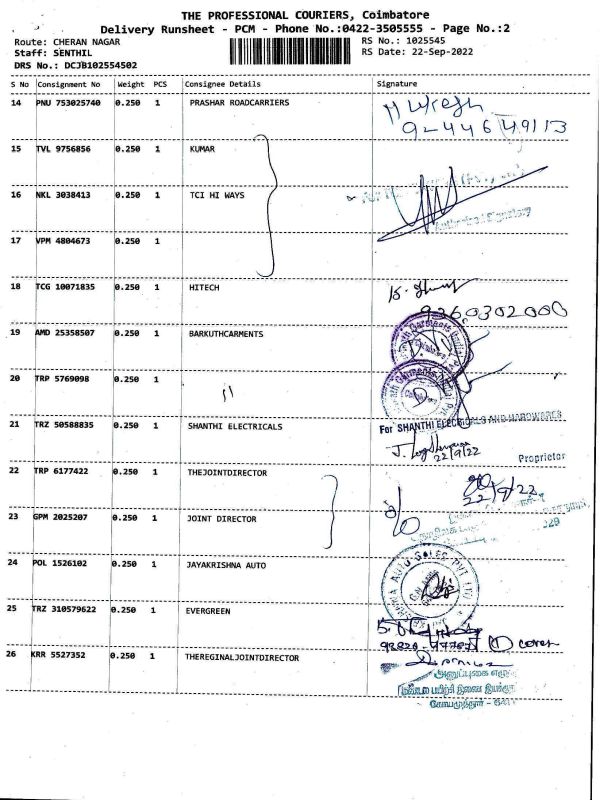 THE PROFESSIONAL COURIERS, Coimbatore
Delivery Runsheet - PCM - Phone No.:0422-3505555 - Page No.:2
Route: CHERAN NAGAR
Staff: SENTHIL
DRS No.: DCJB102554502
RS No.: 1025545
RS Date: 22-Sep-2022
S No Consignment No Weight PCS Consignee Details Signature
14 PNU 753025740 0.250 1 PRASHAR ROADCARRIERS
92446 49113
15 TVL 9756856 0.250 1 KUMAR
16 NKL 3038413 0.250 1 TCI HI WAYS
Authorised Signatory
17 VPM 4804673 0.250 1
18 TCG 10071835 0.250 1 HITECH
9360302000
19 AMD 25358507 0.250 1 BARKUTHCARMENTS
20 TRP 5769098 0.250 1 "
21 TRZ 50588835 0.250 1 SHANTHI ELECTRICALS
For SHANTHI ELECTRICALS AND HARDWARES
22/9/22
Proprietor
22 TRP 6177422 0.250 1 THEJOINTDIRECTOR
22/9/22
23 GPM 2025207 0.250 1 JOINT DIRECTOR
24 POL 1526102 0.250 1 JAYAKRISHNA AUTO
AUTO SALES PVT LTD
25 TRZ 310579622 0.250 1 EVERGREEN
① cover
26 KRR 5527352 0.250 1 THEREGINALJOINTDIRECTOR